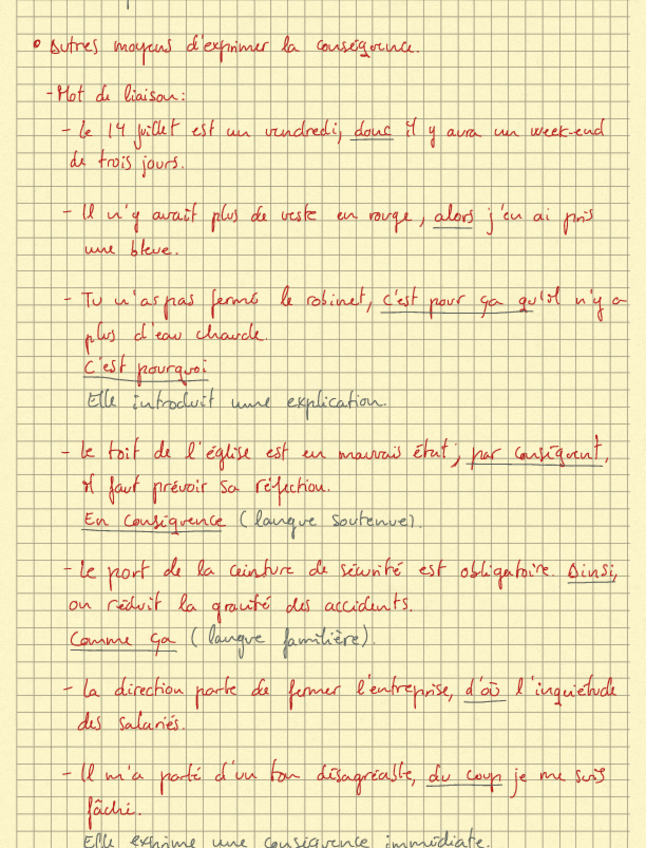 • Autres moyens d'exprimer la conséquence.
- Mot de liaison:
- Le 14 juillet est un vendredi, donc il y aura un week-end
de trois jours.
- Il n'y avait plus de veste en rouge, alors j'en ai pris
une bleue.
- Tu n'as pas fermé le robinet, c'est pour ça qu'il n'y a
plus d'eau chaude.
C'est pourquoi
Elle introduit une explication.
- Le toit de l'église est en mauvais état; par conséquent,
il faut prévoir sa réfection.
En conséquence (langue soutenue).
- Le port de la ceinture de sécurité est obligatoire. Ainsi,
on réduit la gravité des accidents.
Comme ça (langue familière).
- La direction parle de fermer l'entreprise, d'où l'inquiétude
des salariés.
- Il m'a parlé d'un ton désagréable, du coup je me suis
fâché.
Elle exprime une conséquence immédiate.